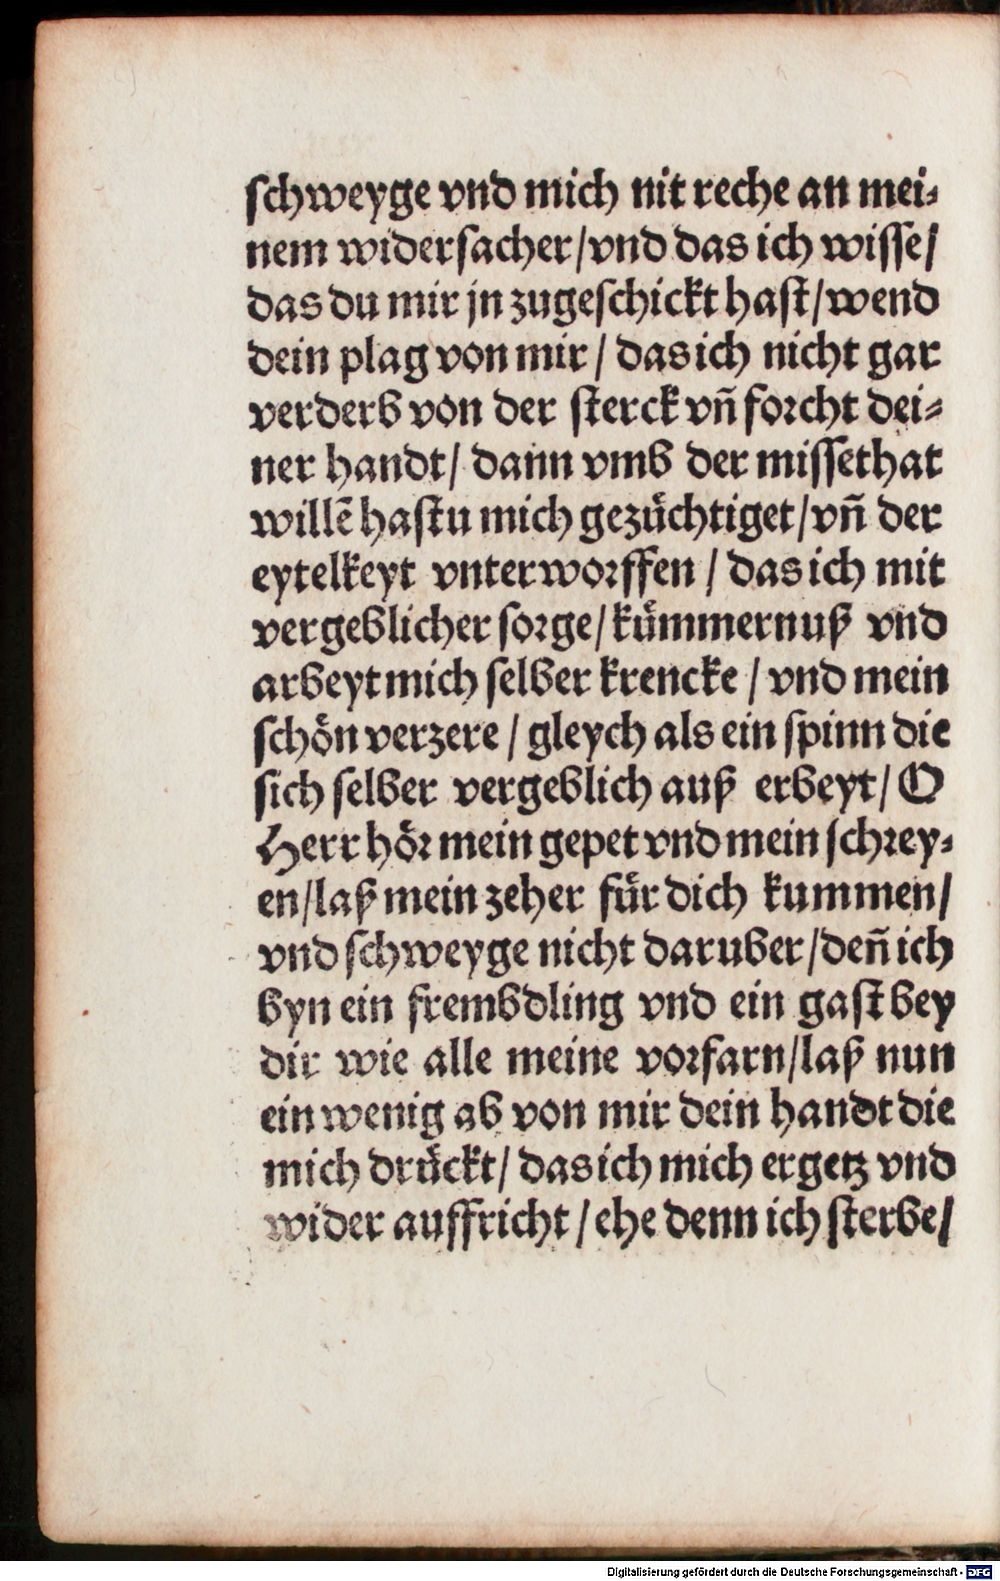 schweyge vnd mich nit reche an mei⸗
nem widersacher/vnd das ich wisse/
das du mir jn zugeschickt hast/wend
dein plag von mir/ das ich nicht gar
verderb von der sterck vñ forcht dei⸗
ner handt/ dann vmb der missethat
willē hastu mich gezüchtiget/vñ der
eytelkeyt vnterworffen / das ich mit
vergeblicher sorge/kümmernuß vnd
arbeyt mich selber krencke / vnd mein
schön verzere / gleych als ein spinn die
sich selber vergeblich auß erbeyt/ O
Herr hör mein gepet vnd mein schrey⸗
en/laß mein zeher für dich kummen/
vnd schweyge nicht daruber/deñ ich
byn ein frembdling vnd ein gast bey
dir wie alle meine vorfarn/laß nun
ein wenig ab von mir dein handt die
mich drückt/ das ich mich ergetz vnd
wider auffricht / ehe denn ich sterbe/
Digitalisierung gefördert durch die Deutsche Forschungsgemeinschaft - DFG